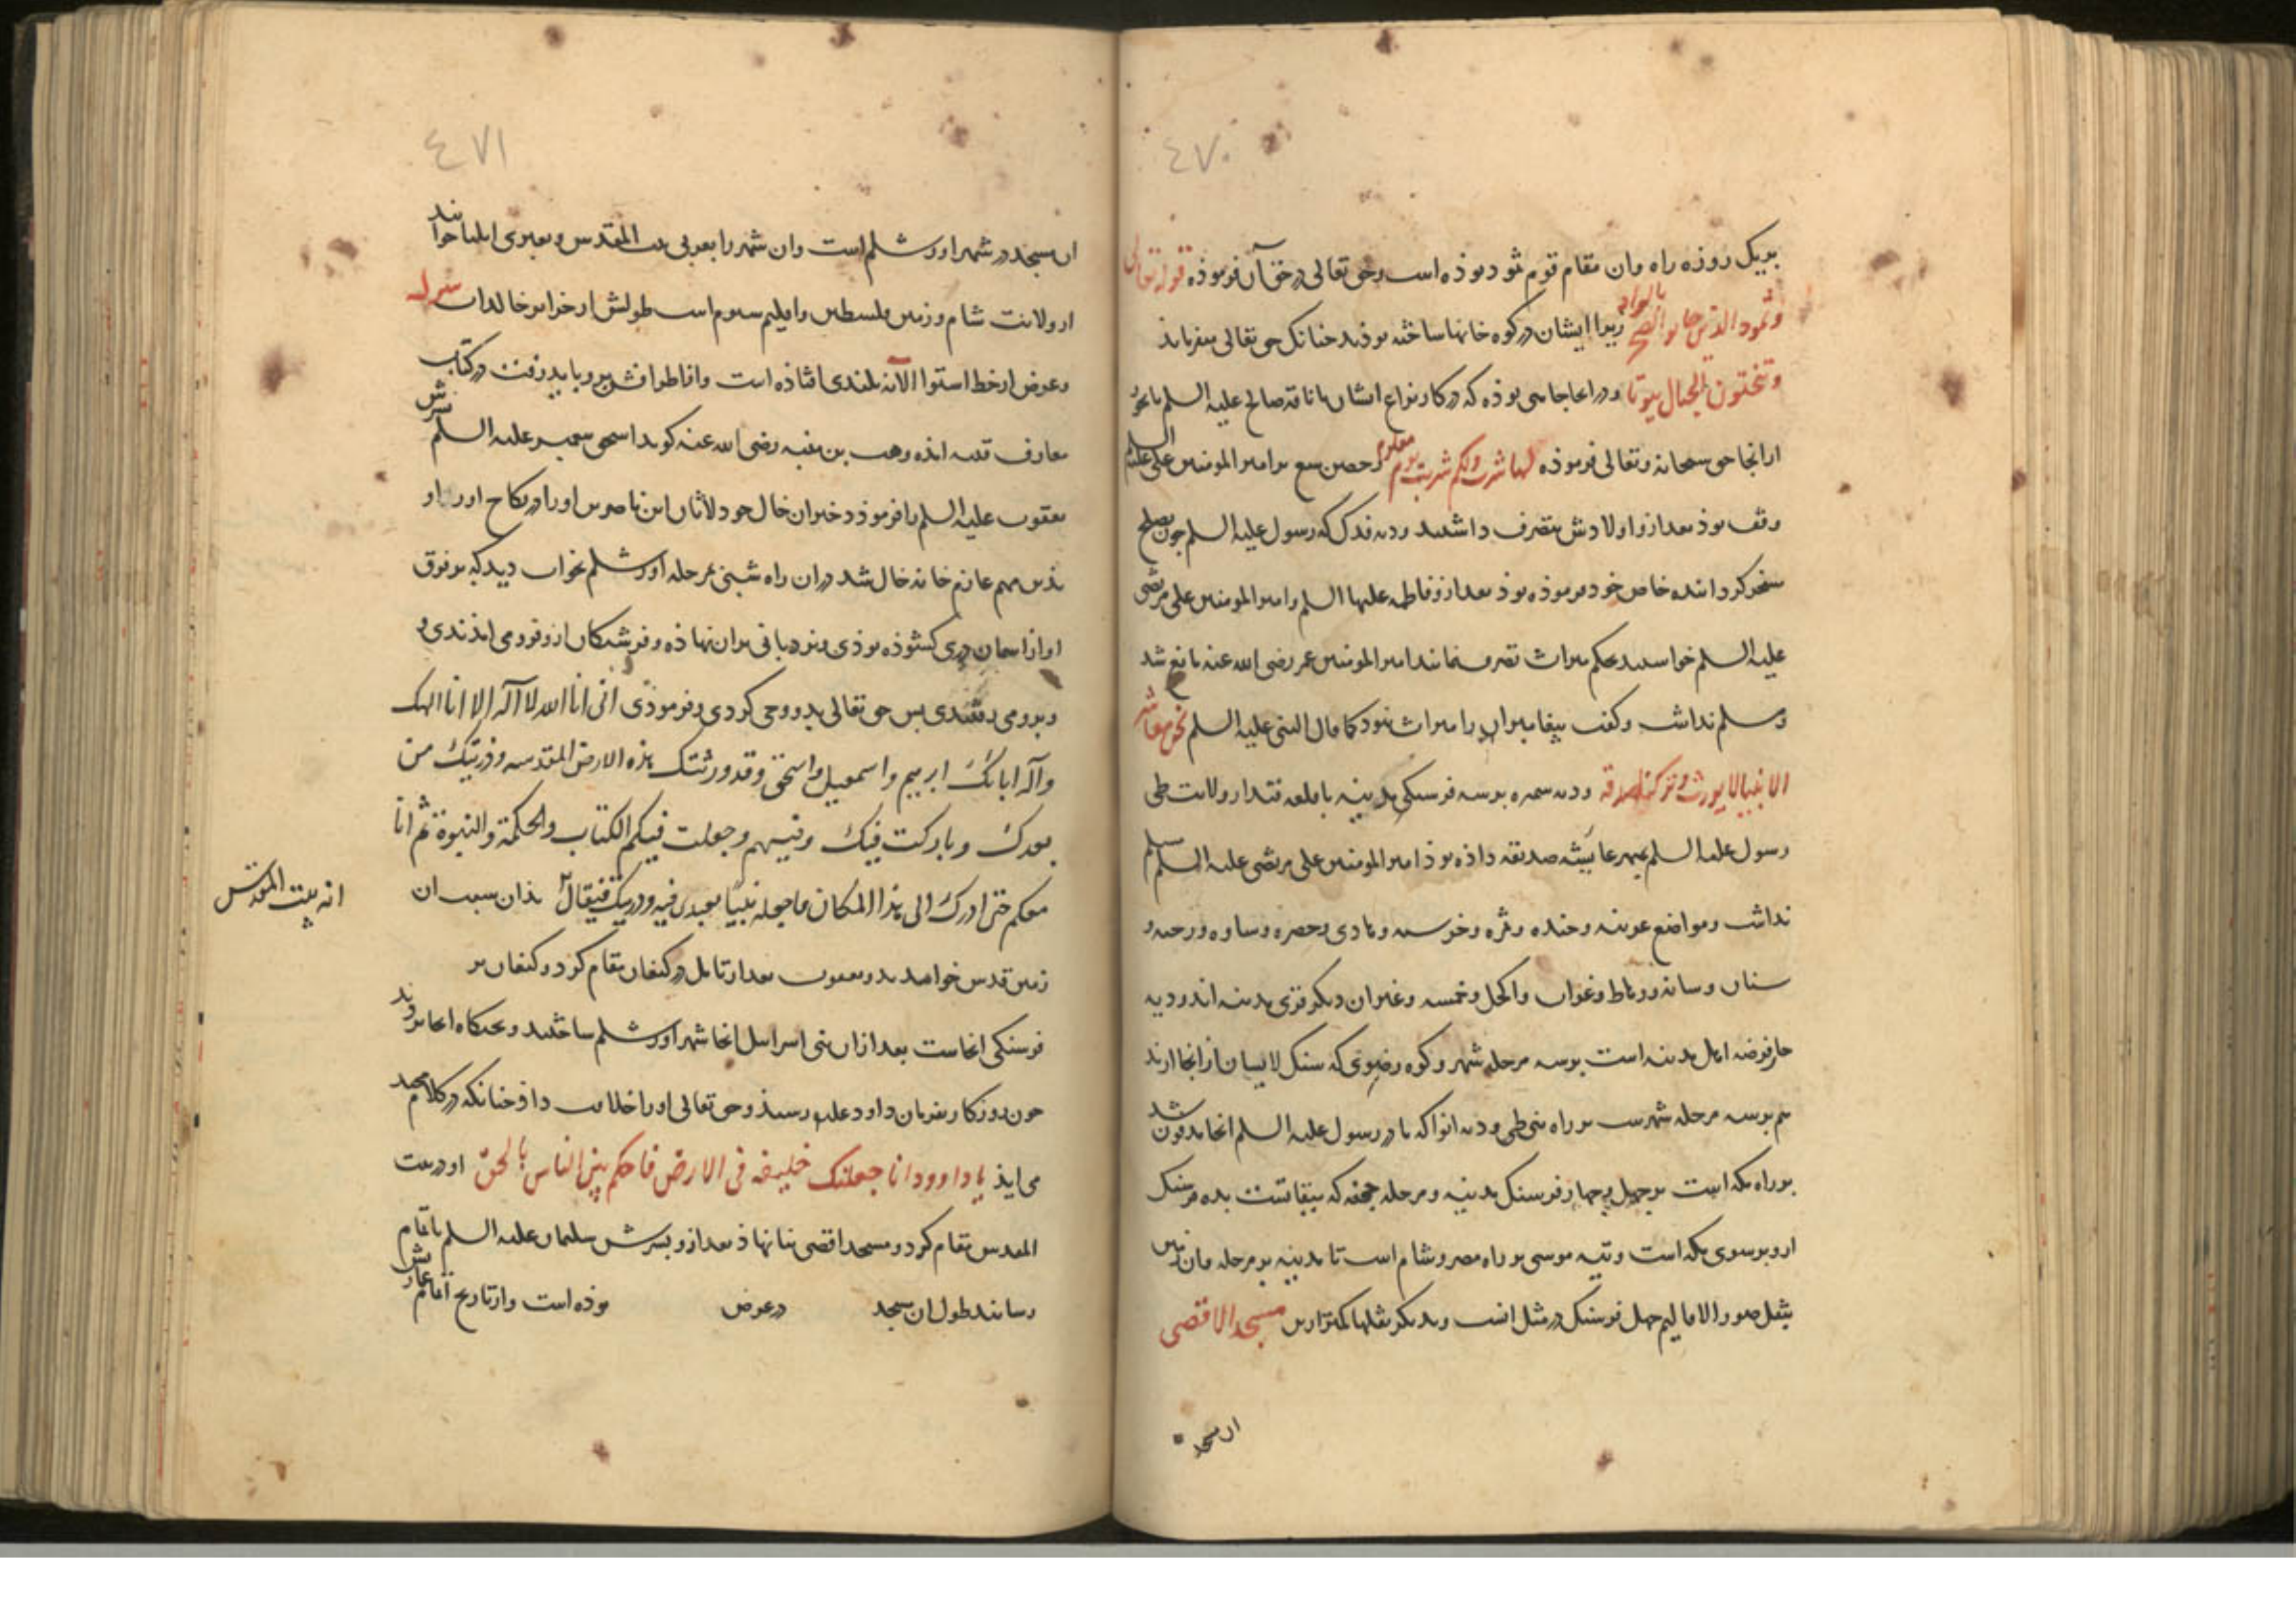 ٤٧٠
بریک روزه راه وان مقام قوم ثمود بوذه است وحق تعالی در حق آن فرموذه قوله تعالی
وثمود الذین جابوا الصخر بالواد زیرا ایشان در کوه خانها ساخته بوذند چنانک حق تعالی میفرماید
وتنحتون الجبال بیوتا ودر انجا چاهی بوذه که در کار نزاع ایشان با ناقه صالح علیه السلم بآبخور
از انجا حق سبحانه وتعالی فرموذه لها شرب ولکم شرب یوم معلوم وحصن ینبع بر امیر المومنین علی علیه السلم
وقف بوذ بعد ازو اولادش متصرف داشتند ودیه فدک که رسول علیه السلم چون بصلح
مسخر کردانیده خاص خود فرموذه بوذ بعد ازو فاطمه علیها السلم وامیر المومنین علی مرتضی
علیه السلم خواستند بحکم میراث تصرف نمایند امیر المومنین عمر رضی الله عنه مانع شد
ومسلم نداشت وکفت پیغامبران را میراث نبود کما قال النبی علیه السلم نحن معاشر
الانبیا لا یورث وترکنا صدقه ودیه بر سه فرسنکی مدینه با قلعه فید از ولایت طی
رسول علیه السلم بمهر عایشه صدیقه داذه بوذ امیر المومنین علی مرتضی علیه السلم مسلم
نداشت ومواضع عرینه وحنده ونمره وحصره وساوه ورحبه و
سنان وسانه ورباط وغراب والکحل وخمسه وغیران دیکر قری مدینه اند ودیه
جار فرضه اهل مدینه است بر سه مرحله شهر وکوه رضوی که سنک از انجا ارند
هم بر سه مرحله شهرست بر راه ودیه ابوا که مادر رسول علیه السلم انجا مدفون شد
بر راه مکه است بر چهل وچهار فرسنک مدینه ومرحله جحفه که میقاتست بده فرسنک
ازو بر سوی مکه است وتیه موسی بر راه مصر وشام است تا مدینه بر مرحله وآن زمین
بنقل صور الاقالیم چهل فرسنک در مثل انست وبدیکر نقلها کمتر ازین مسجد الاقصی
ان مسجد
٤٧١
ان مسجد در شهر اورشلم است وان شهر را بعربی بیت المقدس وبعبری ایلیا خوانند
از ولایت شام وزمین فلسطین واقلیم سیوم است طولش از جزایر خالدات
وعرض از خط استوا بلندی افتاذه است در کتاب
معارف قتیبه امده وهب بن منبه رضی الله عنه کوید اسحق پیغمبر علیه السلم پسرش
یعقوب علیه السلم را فرموذ دختران خال خود لابان بن ناحور او را در نکاح اورد او
بذین مهم عازم خانه خال شد دران راه شبی بمرحله اورشلم بخواب دید که بر فوق
او از اسمان دری کشوذه بوذی ونردبانی بران نهاذه وفرشتکان ازو فرو می امذندی و
وبرو می رفتندی پس حق تعالی بدو وحی کردی وفرموذی انی انا الله لا اله الا انا الهک
واله ابائک ابرهیم واسمعیل واسحق وقد ورثتک هذه الارض المقدسه وذریتک من
بعدک وبارکت فیک وفیهم وجعلت فیکم الکتاب والحکمة والنبوة ثم انا
معکم حتی ادرک الی هذا المکان فاجعله بیتا تعبدنی فیه وذریتک فیقال بذان سبب ان
انه بیت المقدس
زمین قدس خواندند ویعقوب در کنعان مقام کرد وکنعان بر
فرسنکی انجاست بعد ازان بنی اسرایل انجا شهر اورشلم ساختند
چون روزکار بفرمان داود علیه رسید وحق تعالی او را خلافت داد چنانکه در کلام مجید
می ایذ یا داوود انا جعلنک خلیفه فی الارض فاحکم بین الناس بالحق او در بیت
المقدس مقام کرد ومسجد اقصی بنا نهاذ بعد ازو پسرش سلیمان علیه السلم باتمام
رسانید طول ان مسجد در عرض بوذه است واز تاریخ اتمام عمارتش